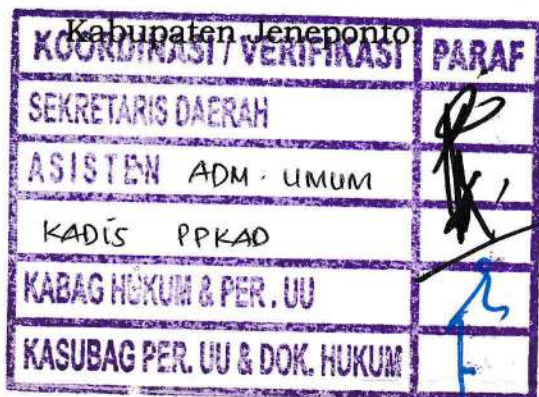 Kabupaten Jeneponto
KOORDINASI / VERIFIKASI PARAF
SEKRETARIS DAERAH
ASISTEN ADM. UMUM
KADIS PPKAD
KABAG HUKUM & PER. UU
KASUBAG PER. UU & DOK. HUKUM